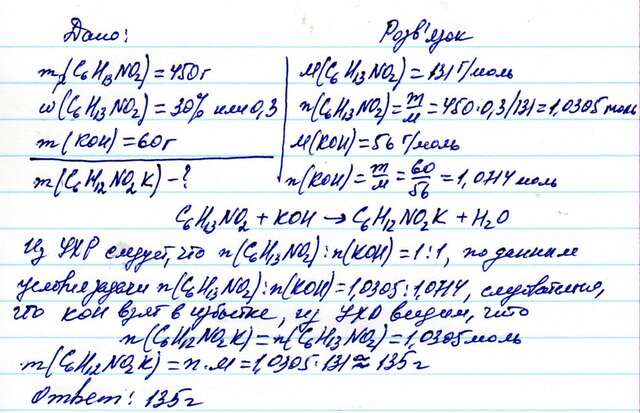 Дано:
Розв'язок
m₁(C₆H₁₃NO₂) = 450г
M(C₆H₁₃NO₂) = 131 Г/моль
ω(C₆H₁₃NO₂) = 30% или 0,3
n(C₆H₁₃NO₂) = m/M = 450·0,3/131 = 1,0305 моль
m(KOH) = 60г
M(KOH) = 56 Г/моль
m(C₆H₁₂NO₂K) - ?
n(KOH) = m/M = 60/56 = 1,0714 моль
C₆H₁₃NO₂ + KOH → C₆H₁₂NO₂K + H₂O
Из УХР следует, что n(C₆H₁₃NO₂) : n(KOH) = 1:1, по данным
условия задачи n(C₆H₁₃NO₂) : n(KOH) = 1,0305 : 1,0714, следовательно,
что KOH взят в избытке, из УХР видим, что
n(C₆H₁₂NO₂K) = n(C₆H₁₃NO₂) = 1,0305 моль
m(C₆H₁₂NO₂K) = n·M = 1,0305·131 ≈ 135 г
Ответ: 135 г